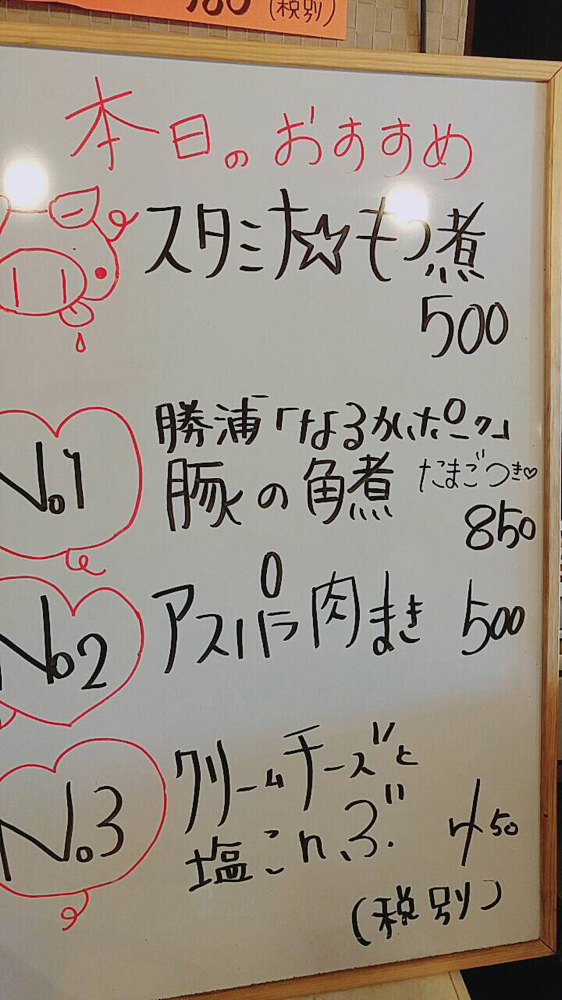 (税別)
本日のおすすめ
スタミナ☆もつ煮
500
No.1
勝浦「なるかぃポーク」
豚の角煮 たまごつき♡
850
No.2
アスパラ肉まき 500
No.3
クリームチーズと
塩こんぶ 450
(税別)